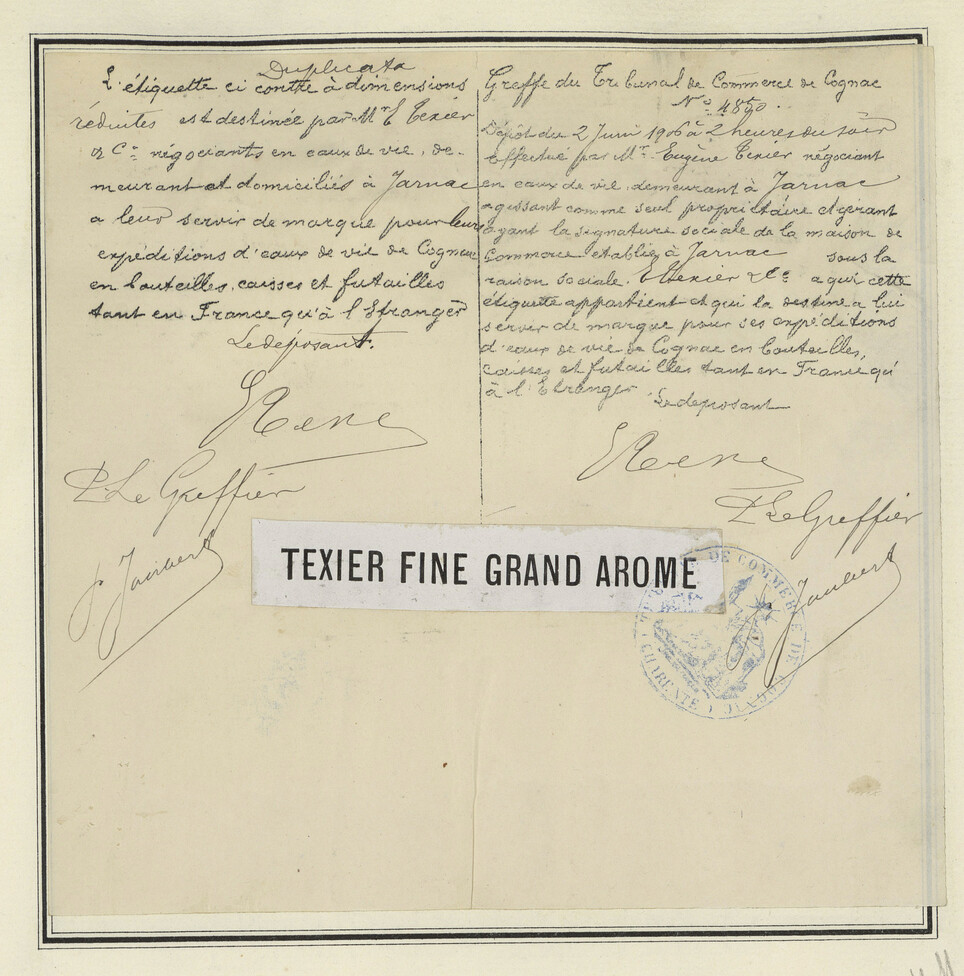 Duplicata
L'étiquette ci contre à dimensions
réduites est destinée par Mr E Texier
& Cie négociants en eaux de vie, de-
meurant et domiciliés à Jarnac
a leur servir de marque pour leurs
expéditions d'eaux de vie de Cognac
en bouteilles, caisses et futailles
tant en France qu'à l'Etranger
Le déposant.
P. Le Greffier
Greffe du Tribunal de Commerce de Cognac
No 4850.
Dépôt du 2 Juin 1906 à 2 heures du soir
effectué par Mr Eugène Texier négociant
en eaux de vie demeurant à Jarnac
agissant comme seul propriétaire et gérant
ayant la signature sociale de la maison de
Commerce établie à Jarnac sous la
raison sociale E Texier & Cie a qui cette
étiquette appartient et qui la destine a lui
servir de marque pour ses expéditions
d'eaux de vie de Cognac en bouteilles,
caisses et futailles tant en France qu'
à l'Etranger
Le deposant
P. Le Greffier
J. Jaubert
TEXIER FINE GRAND AROME
DE COMMERCE DE COGNAC
(CHARENTE)